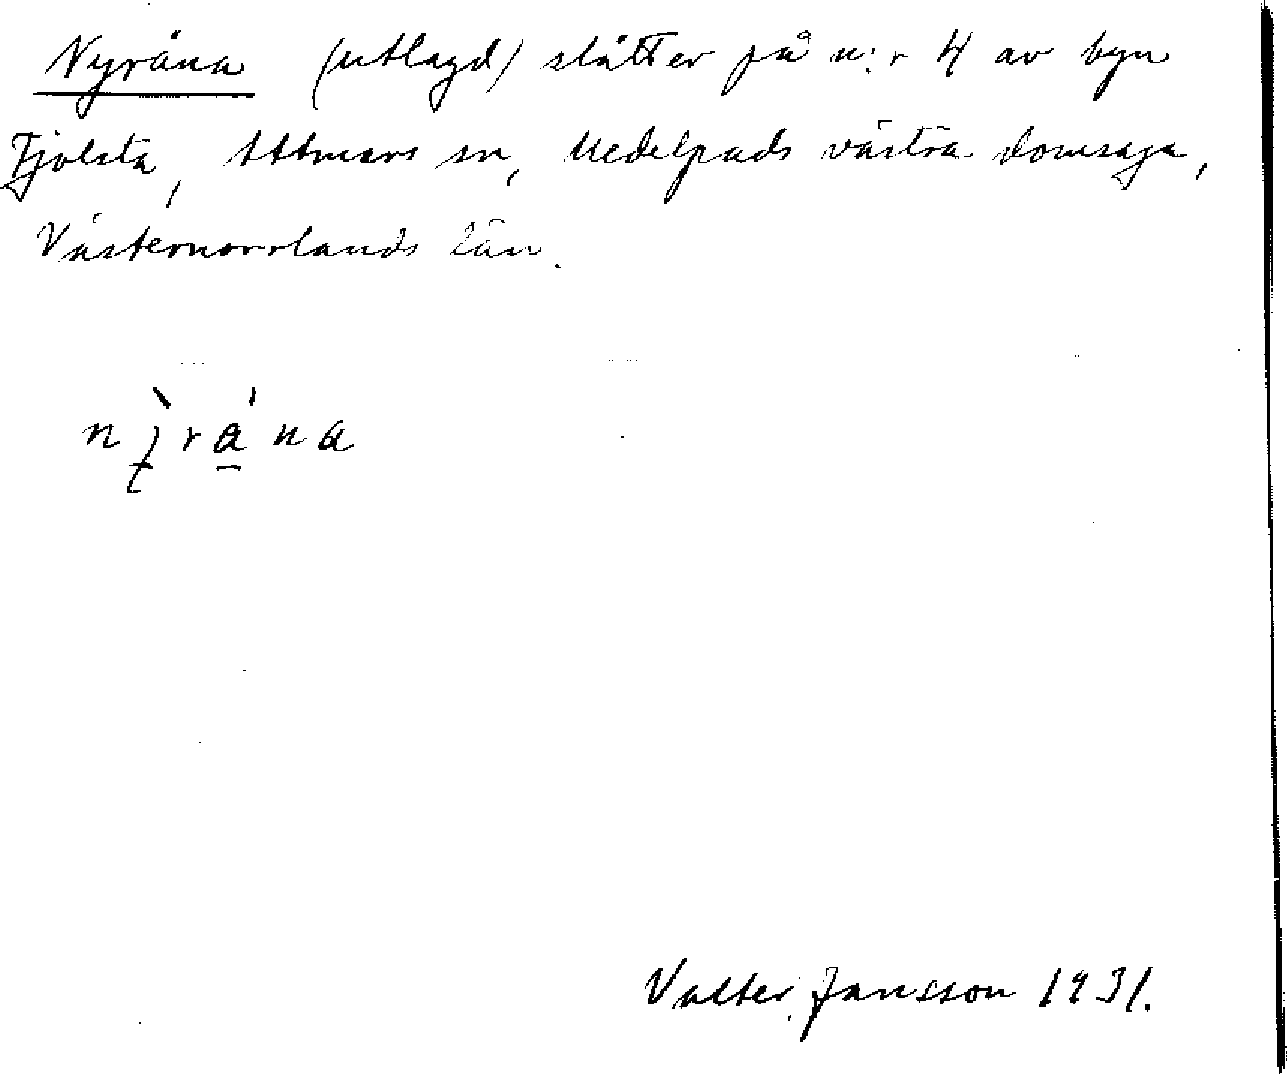 Nyråna (utlagd) slåtter på n:r 4 av byn
Fjolsta, Attmars sn, Medelpads västra domsaga,
Västernorrlands län.
Valter Jansson 1931.